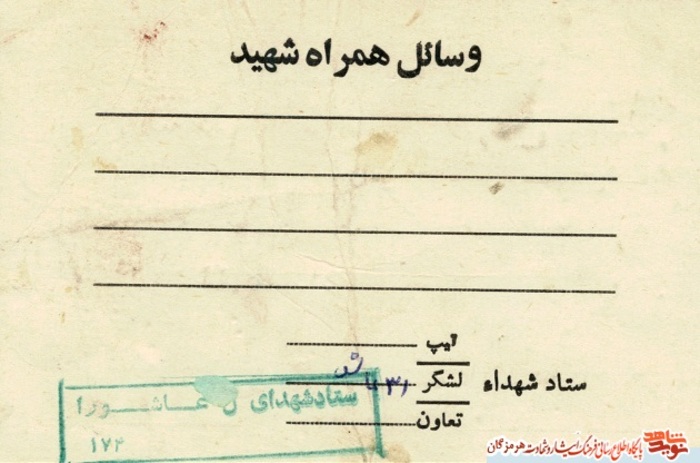 وسائل همراه شهید
تیپ
ستاد شهداء لشگر ۳۱
تعاون
ستاد شهدای ل عاشورا
۱۷۲
نوید شاهد
پایگاه اطلاع رسانی فرهنگ ایثار و شهادت هرمزگان